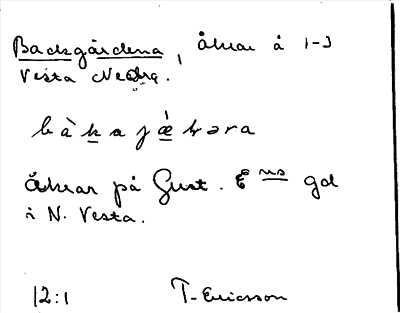 Backgårdena, åkrar å 1-3
Vesta Nedra.
bàkajǽkəra
åkrar på Gust. Eˢ gd
i N. Vesta.
12:1 T. Ericsson